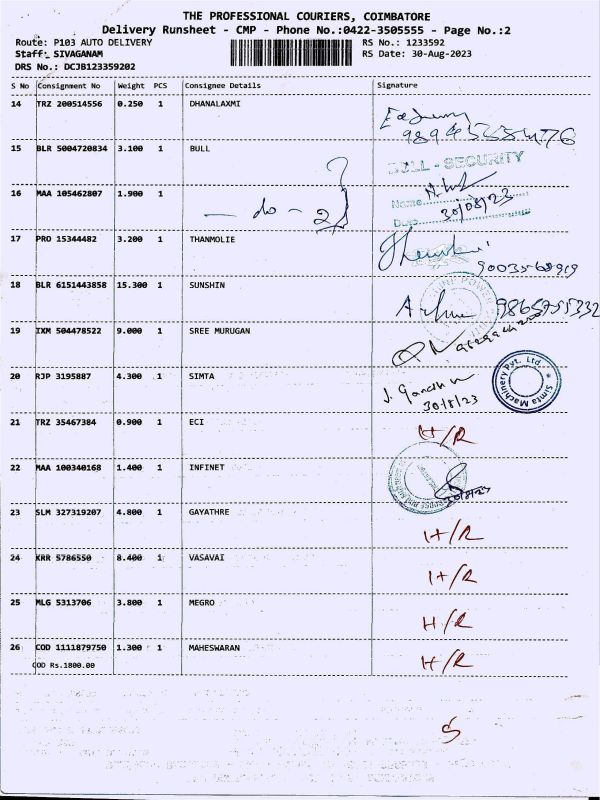 THE PROFESSIONAL COURIERS, COIMBATORE
Delivery Runsheet - CMP - Phone No.:0422-3505555 - Page No.:2
Route: P103 AUTO DELIVERY RS No.: 1233592
Staff: SIVAGANAM RS Date: 30-Aug-2023
DRS No.: DCJB123359202
S No Consignment No Weight PCS Consignee Details Signature
14 TRZ 200514556 0.250 1 DHANALAXMI
15 BLR 5004720834 3.100 1 BULL
BULL - SECURITY
16 MAA 105462807 1.900 1
Name
— do — 2
Date 30/08/23
17 PRO 15344482 3.200 1 THANMOLIE
9003568919
18 BLR 6151443858 15.300 1 SUNSHIN
19 IXM 504478522 9.000 1 SREE MURUGAN
20 RJP 3195887 4.300 1 SIMTA
Simta Machinery Pvt. Ltd.
30/8/23
21 TRZ 35467384 0.900 1 ECI H/R
22 MAA 100340168 1.400 1 INFINET
23 SLM 327319207 4.800 1 GAYATHRE H/R
24 KRR 5786550 8.400 1 VASAVAI H/R
25 MLG 5313706 3.800 1 MEGRO H/R
26 COD 1111879750 1.300 1 MAHESWARAN H/R
COD Rs.1800.00